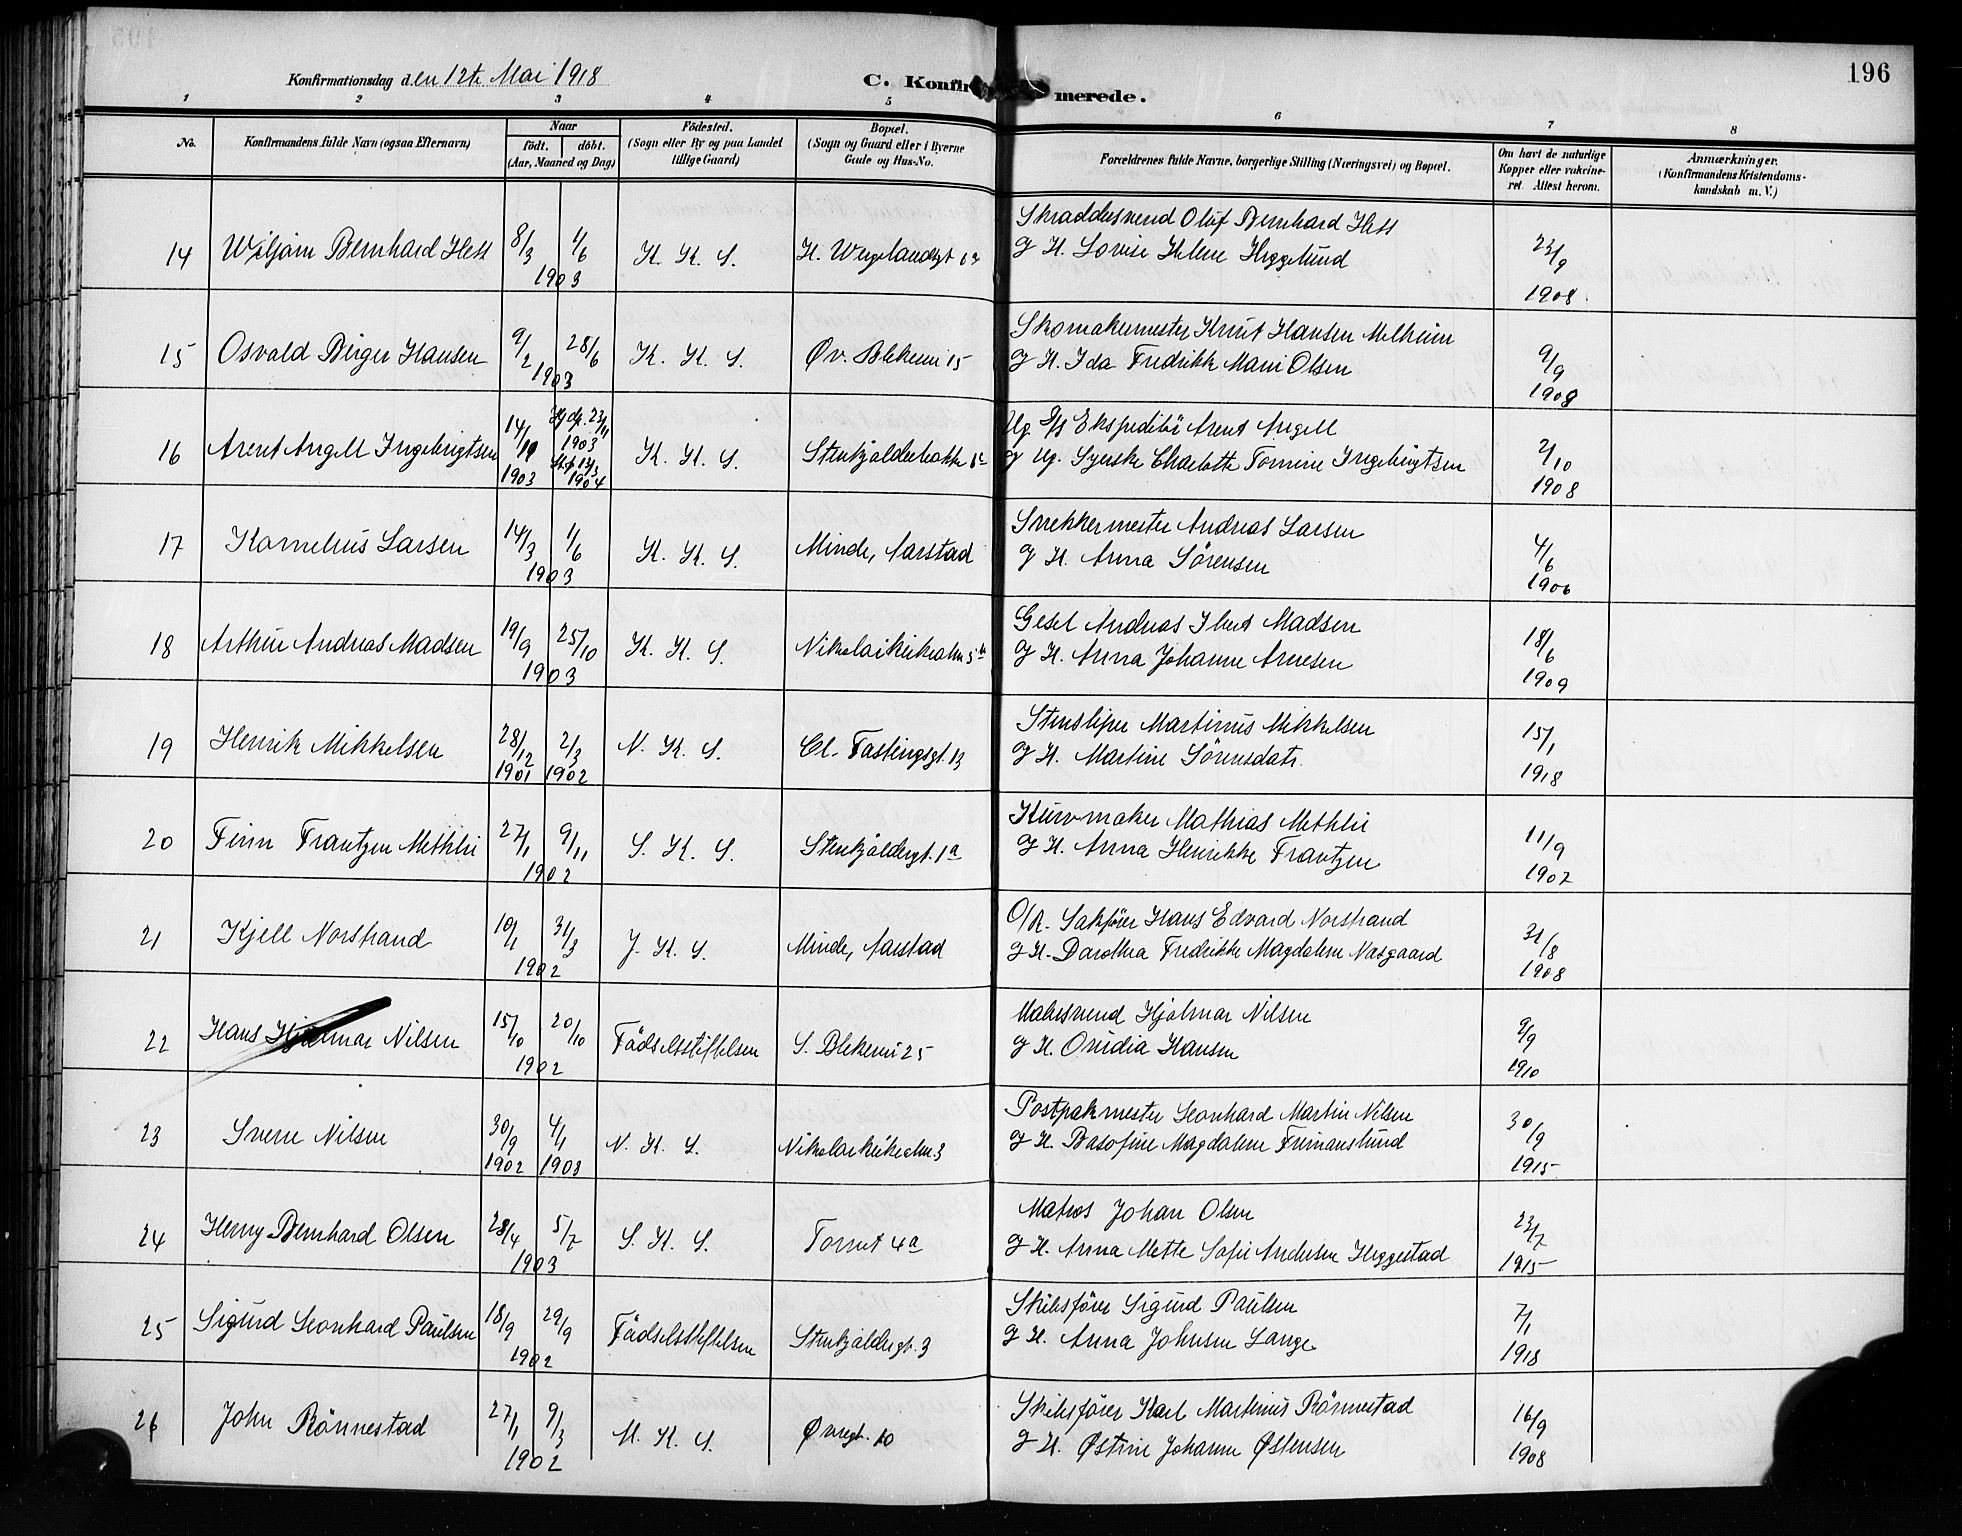 196
Konfirmationsdag den 12te Mai 1918
C. Konfirmerede.
1 2 3 4 5 6 7 8
No.
Konfirmandens fulde Navn (ogsaa Efternavn)
Naar
födt. döbt.
(Aar, Maaned og Dag)
Födested.
(Sogn eller By og paa Landet
tillige Gaard)
Bopæl.
(Sogn og Gaard eller i Byerne
Gade og Hus-No.
Forældrenes fulde Navne, borgerlige Stilling (Næringsvei) og Bopæl.
Om havt de naturlige
Kopper eller vakcine-
ret. Attest herom.
Anmærkninger.
(Konfirmandens Kristendoms-
kundskab m. V.)
14 Wiljam Bernhard Hess 8/3 1/6 1903 K. K. S. H. Wergelandsgt
Skraddersvend Oluf Bernhard Hess
g H. Lovise Helene Heggelund
22/9 1908.
15 Osvald Birger Hansen 9/2 28/6 1903 K. K. S. Øv. Blekevei 15
Skomakermester Knut Hansen Melheim
g H. Ida Fredrikke Marie Olsen
9/9 1908
16 Arent Angell Ingebrigtsen 14/11 1903 Hj dp. 23/11 1903 1904 K. K. S. Stenkjelderbakke
Ug. D/S Ekspeditör Arent Angell
g Ug. Syerske Charlotte Tomine Ingebrigtsen
2/10 1908
17 Kornelius Larsen 14/3 1/6 1903 K. K. S. Minde, Aarstad
Snekkermester Andreas Larsen
g H. Anna Sörensen
4/6 1906
18 Arthur Andreas Madsen 19/9 25/10 1903 K. K. S. Nikolaikirkealm 5
Gesel Andreas Madsen
g H. Anna Johanne Arnesen
18/6 1909
19 Henrik Mikkelsen 28/12 1901 2/3 1902 N. K. S. Cl. Fastingsgt. 13
Stensliper Martinus Mikkelsen
g H. Martine Sörensdatr.
15/1 1918
20 Finn Frantzen Methlie 27/1 9/11 1902 S. K. S. Stenkjeldergt. 1a
Kurvmaker Mathias Methlie
g H. Anna Henrikke Frantzen
11/9 1907
21 Kjell Norstrand 10/1 31/3 1902 J. K. S. Minde, Aarstad
O/R. Sakförer Hans Edvard Norstrand
g H. Dorothea Fredrikke Magdalene Nosgaard
31/8 1908
22 Hans Hjalmar Nilsen 15/10 20/10 1902 Födselsstiftelsen S. Blekevei 25
Malersvend Hjalmar Nilsen
g H. Ovidia Hansen
9/9 1910
23 Sverre Nilsen 30/9 1902 4/1 1903 N. K. S. Nikolaikirkealm 3
Postpakmester Leonhard Martin Nilsen
g H. Magdalene
30/9 1915
24 Henry Bernhard Olsen 28/4 5/7 1903 S. K. S. Torvet 4a
Matros Johan Olsen
g H. Anna Mette Sofie Andersen Heggestad
23/7 1915
25 Sigurd Leonhard Paulsen 18/9 29/9 1902 Födselsstiftelsen Stenkjeldergt. 3
Skibsförer Sigurd Paulsen
g H. Anna Johnsen Lange
7/1 1918
26 John Rönnestad 27/1 9/3 1902 M. K. S. Øvregt. 10
Skibsförer Karl Martinus Rönnestad
g H. Østine Johanne Østensen
16/9 1908